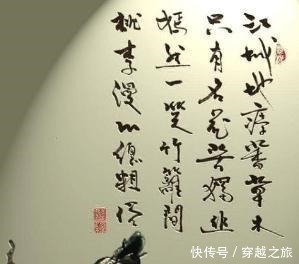 江城地瘴蕃草木
只有名花苦幽独
嫣然一笑竹篱间
桃李漫山总粗俗
快传号/穿越之旅